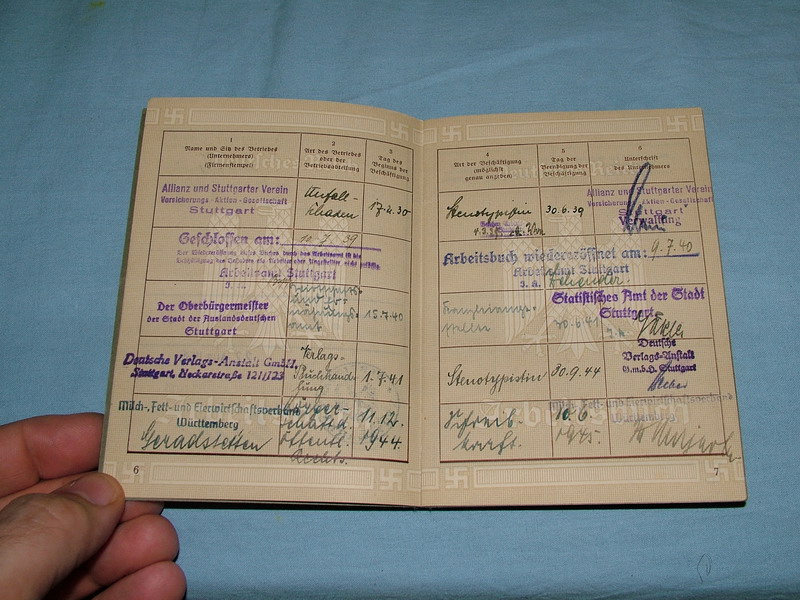 1
Name und Sitz des Betriebes
(Unternehmers)
(Firmenstempel)
2
Art des Betriebes
oder der
Betriebsabteilung
3
Tag
des
Beginns der
Beschäftigung
Allianz und Stuttgarter Verein
Versicherungs-Aktien-Gesellschaft
Stuttgart
Unfall-
Schaden
17.4.30
Geschlossen am: 10.7.39
Arbeitsamt Stuttgart
Der Oberbürgermeister
der Stadt der Auslandsdeutschen
Stuttgart
amt
15.7.40
Deutsche Verlags-Anstalt GmbH.
Stuttgart, Neckarstraße 121/123
Verlags-
Buchhand-
lung
1.7.41
Milch-, Fett- und Eierwirtschaftsverband
Württemberg
Geradstetten
Körper-
schaft d.
öffentl.
Rechts.
11.12.
1944.
6
4
Art der Beschäftigung
(möglichst
genau angeben)
5
Tag der
Beendigung der
Beschäftigung
6
Unterschrift
des Unternehmers
Stenotypistin
30.6.39
Allianz und Stuttgarter Verein
Versicherungs-Aktien-Gesellschaft
Stuttgart
Verwaltung
Arbeitsbuch wiedereröffnet am: 9.7.40
Arbeitsamt Stuttgart
J. A.
30.6.41
Statistisches Amt der Stadt
Stuttgart
Stenotypistin
30.9.44
Deutsche
Verlags-Anstalt
G.m.b.H. Stuttgart
Schreib-
kraft.
10.6.
1945.
Milch-, Fett- und Eierwirtschaftsverband
Württemberg
7